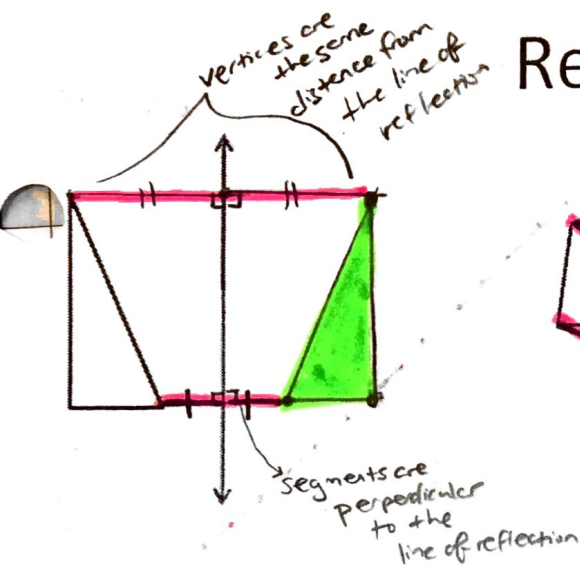 vertices are
the same
distance from
the line of
reflection
Re
segments are
perpendicular
to the
line of reflection